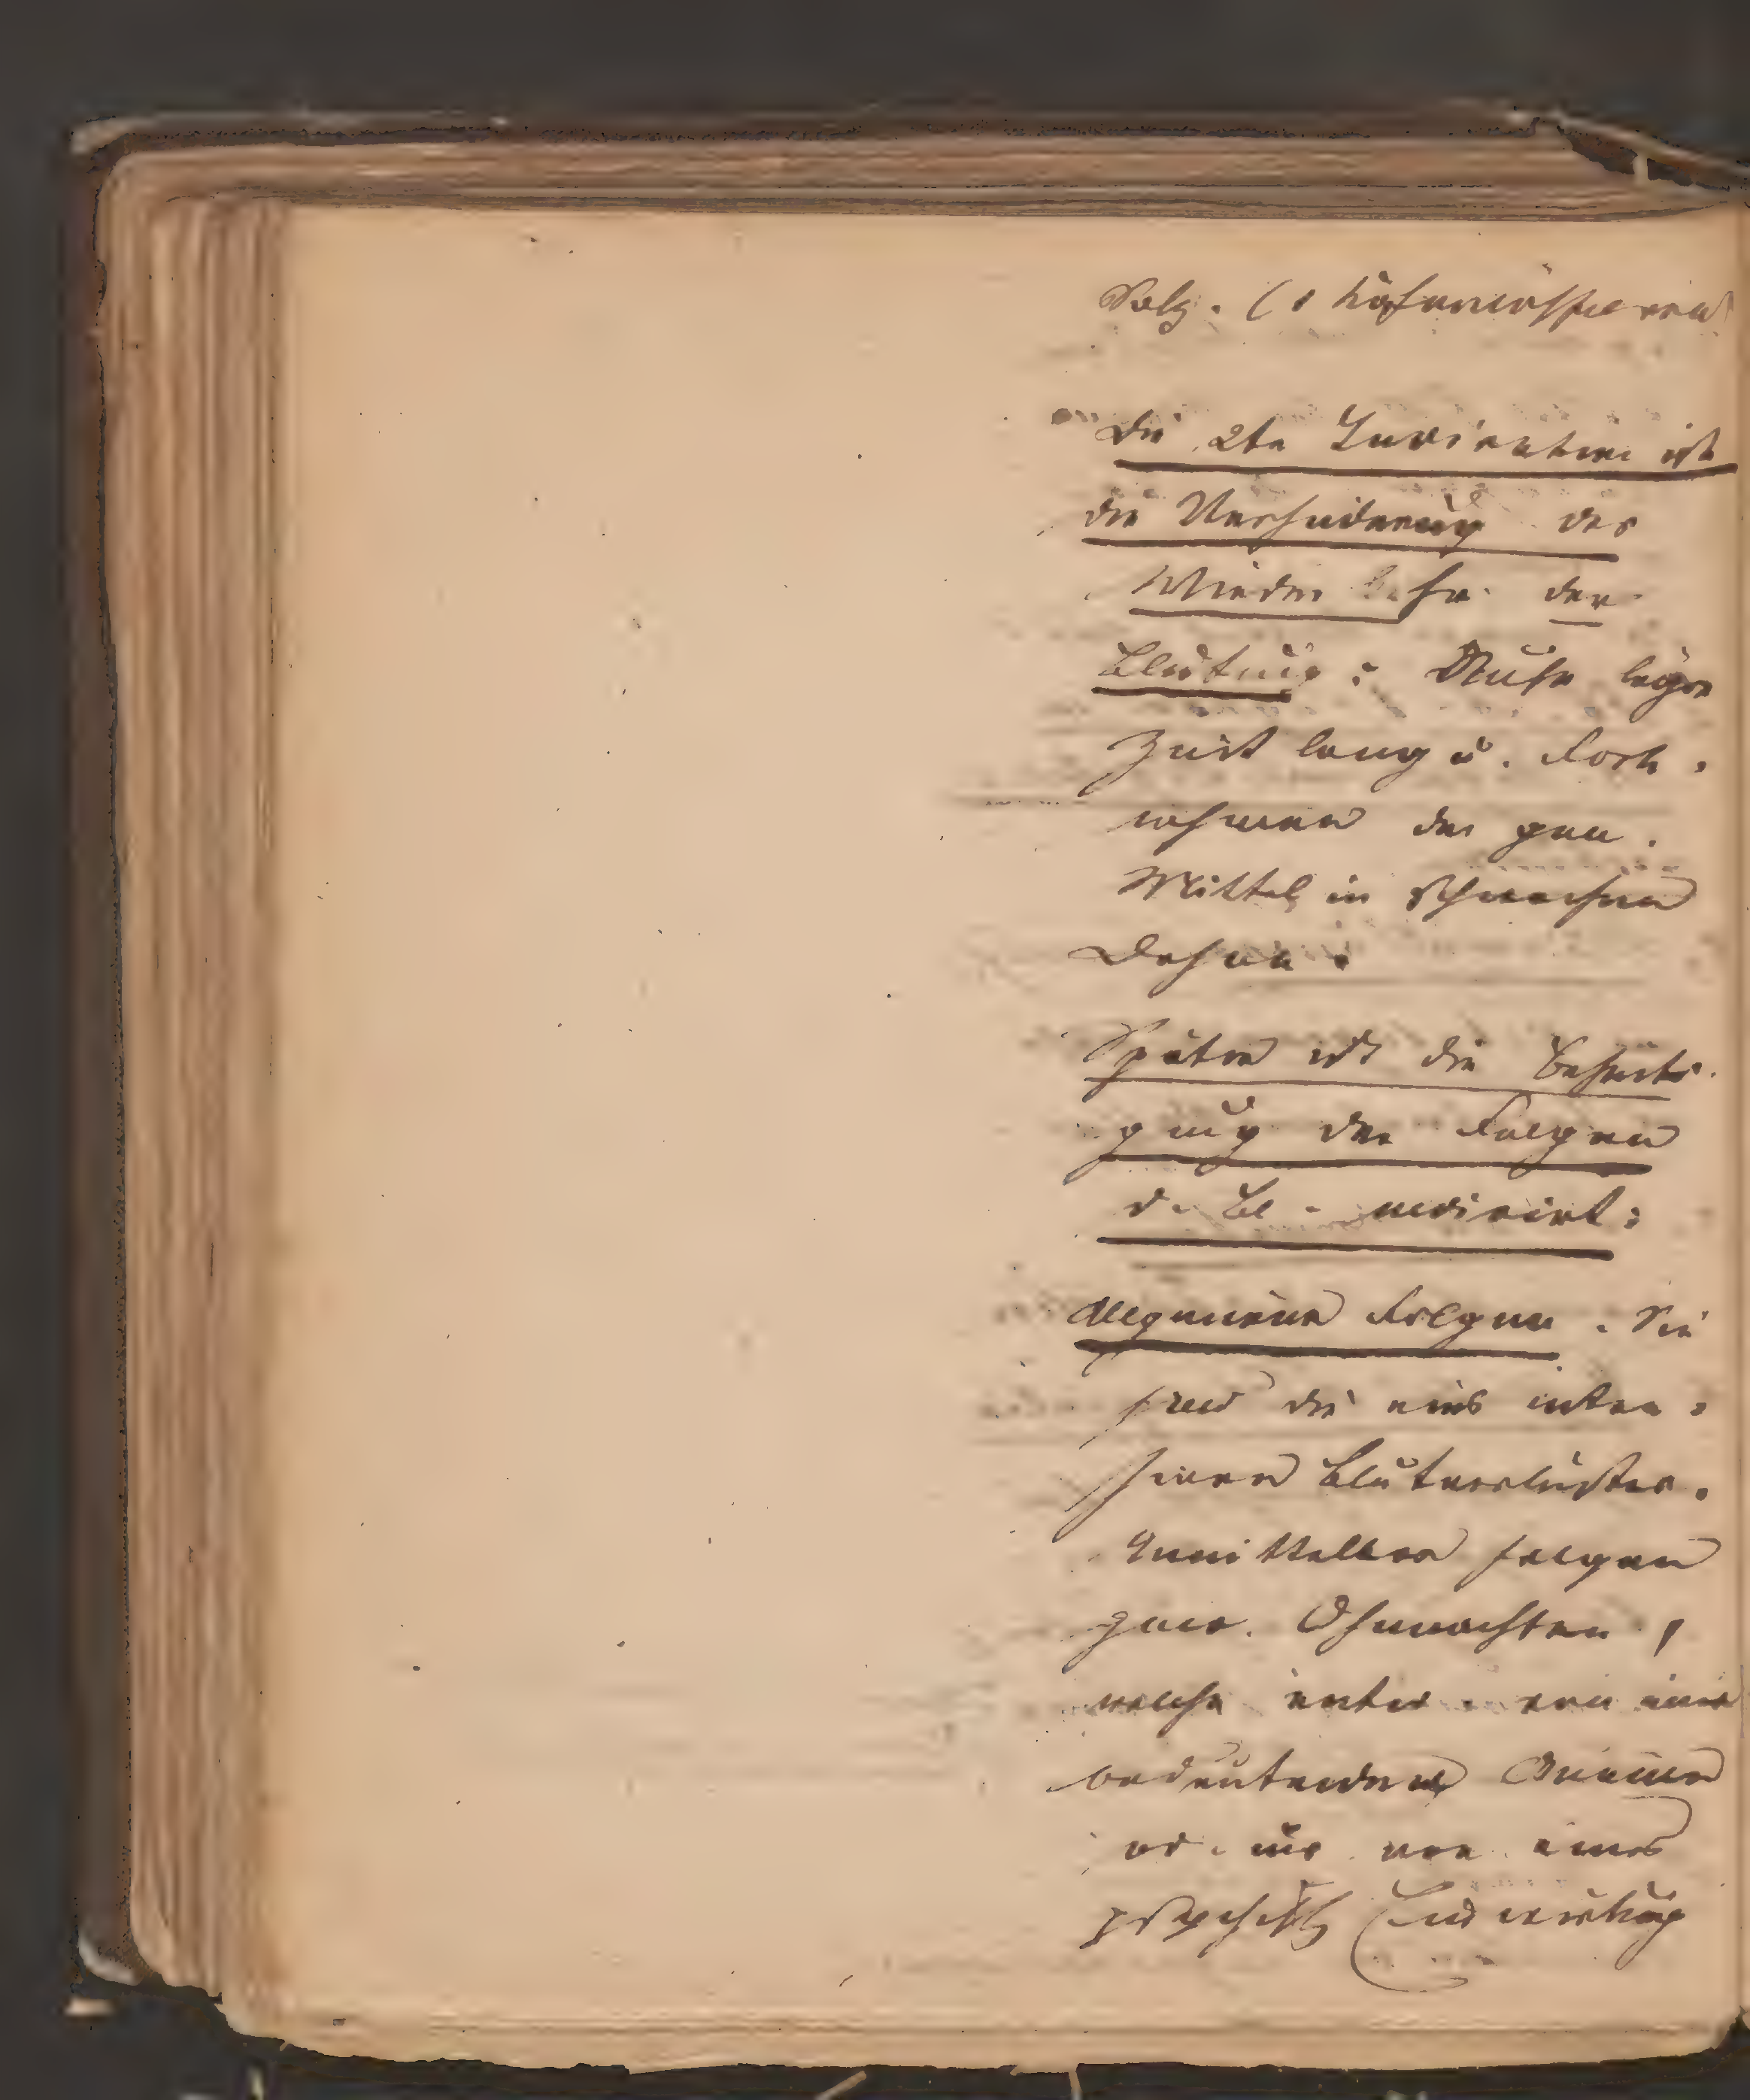 Salz. (1
Die 2te Indication ist
die Verhinderung der
Wiederkehr der
Blutung: Ruhe läger
Zeit lang u. Fort-
nehmen der gen.
Mittel in schwachen
Dosen.
Später ist die Beseiti-
gung der Folgen
d. Bl. indicirt:
Allgemeine Folgen. Sie
sind die eines inten-
siven Blutverlustes.
Unmittelbar folgen
zuer. Ohnmachten,
welche unter von einer
bedeutenden Anämie
od. nur von einer
psychisch Einwirkung